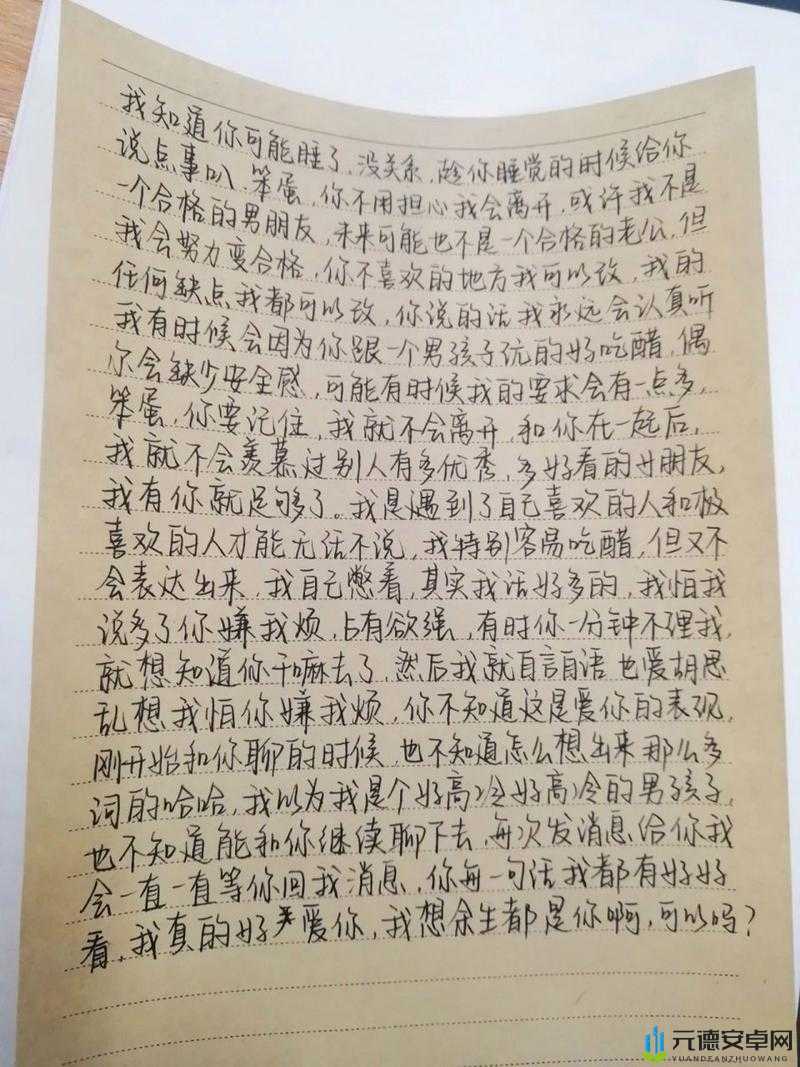 我知道你可能睡了,没关系,趁你睡觉的时候给你
说点事叭,笨蛋,你不用担心我会离开,或许我不是
一个合格的男朋友,未来可能也不是一个合格的老公,但
我会努力变合格,你不喜欢的地方我可以改,我的
任何缺点我都可以改,你说的话我永远会认真听
我有时候会因为你跟一个男孩子玩的好吃醋,偶
尔会缺少安全感,可能有时候我的要求会有一点多,
笨蛋,你要记住,我就不会离开,和你在一起后,
我就不会羡慕过别人有多优秀,多好看的女朋友,
我有你就足够了。我是遇到了自己喜欢的人和极
喜欢的人才能无话不说,我特别容易吃醋,但又不
会表达出来,我自己憋着,其实我话好多的,我怕我
说多了你嫌我烦,占有欲强,有时你一分钟不理我,
就想知道你干嘛去了,然后我就自言自语也爱胡思
乱想我怕你嫌我烦,你不知道这是爱你的表现,
刚开始和你聊的时候,也不知道怎么想出来那么多
词的哈哈,我以为我是个好高冷好高冷的男孩子,
也不知道能和你继续聊下去,每次发消息给你我
会一直一直等你回我消息,你每一句话我都有好好
看,我真的好爱你,我想余生都是你啊,可以吗?
元德安卓网
YUANDEANZHUOWANG